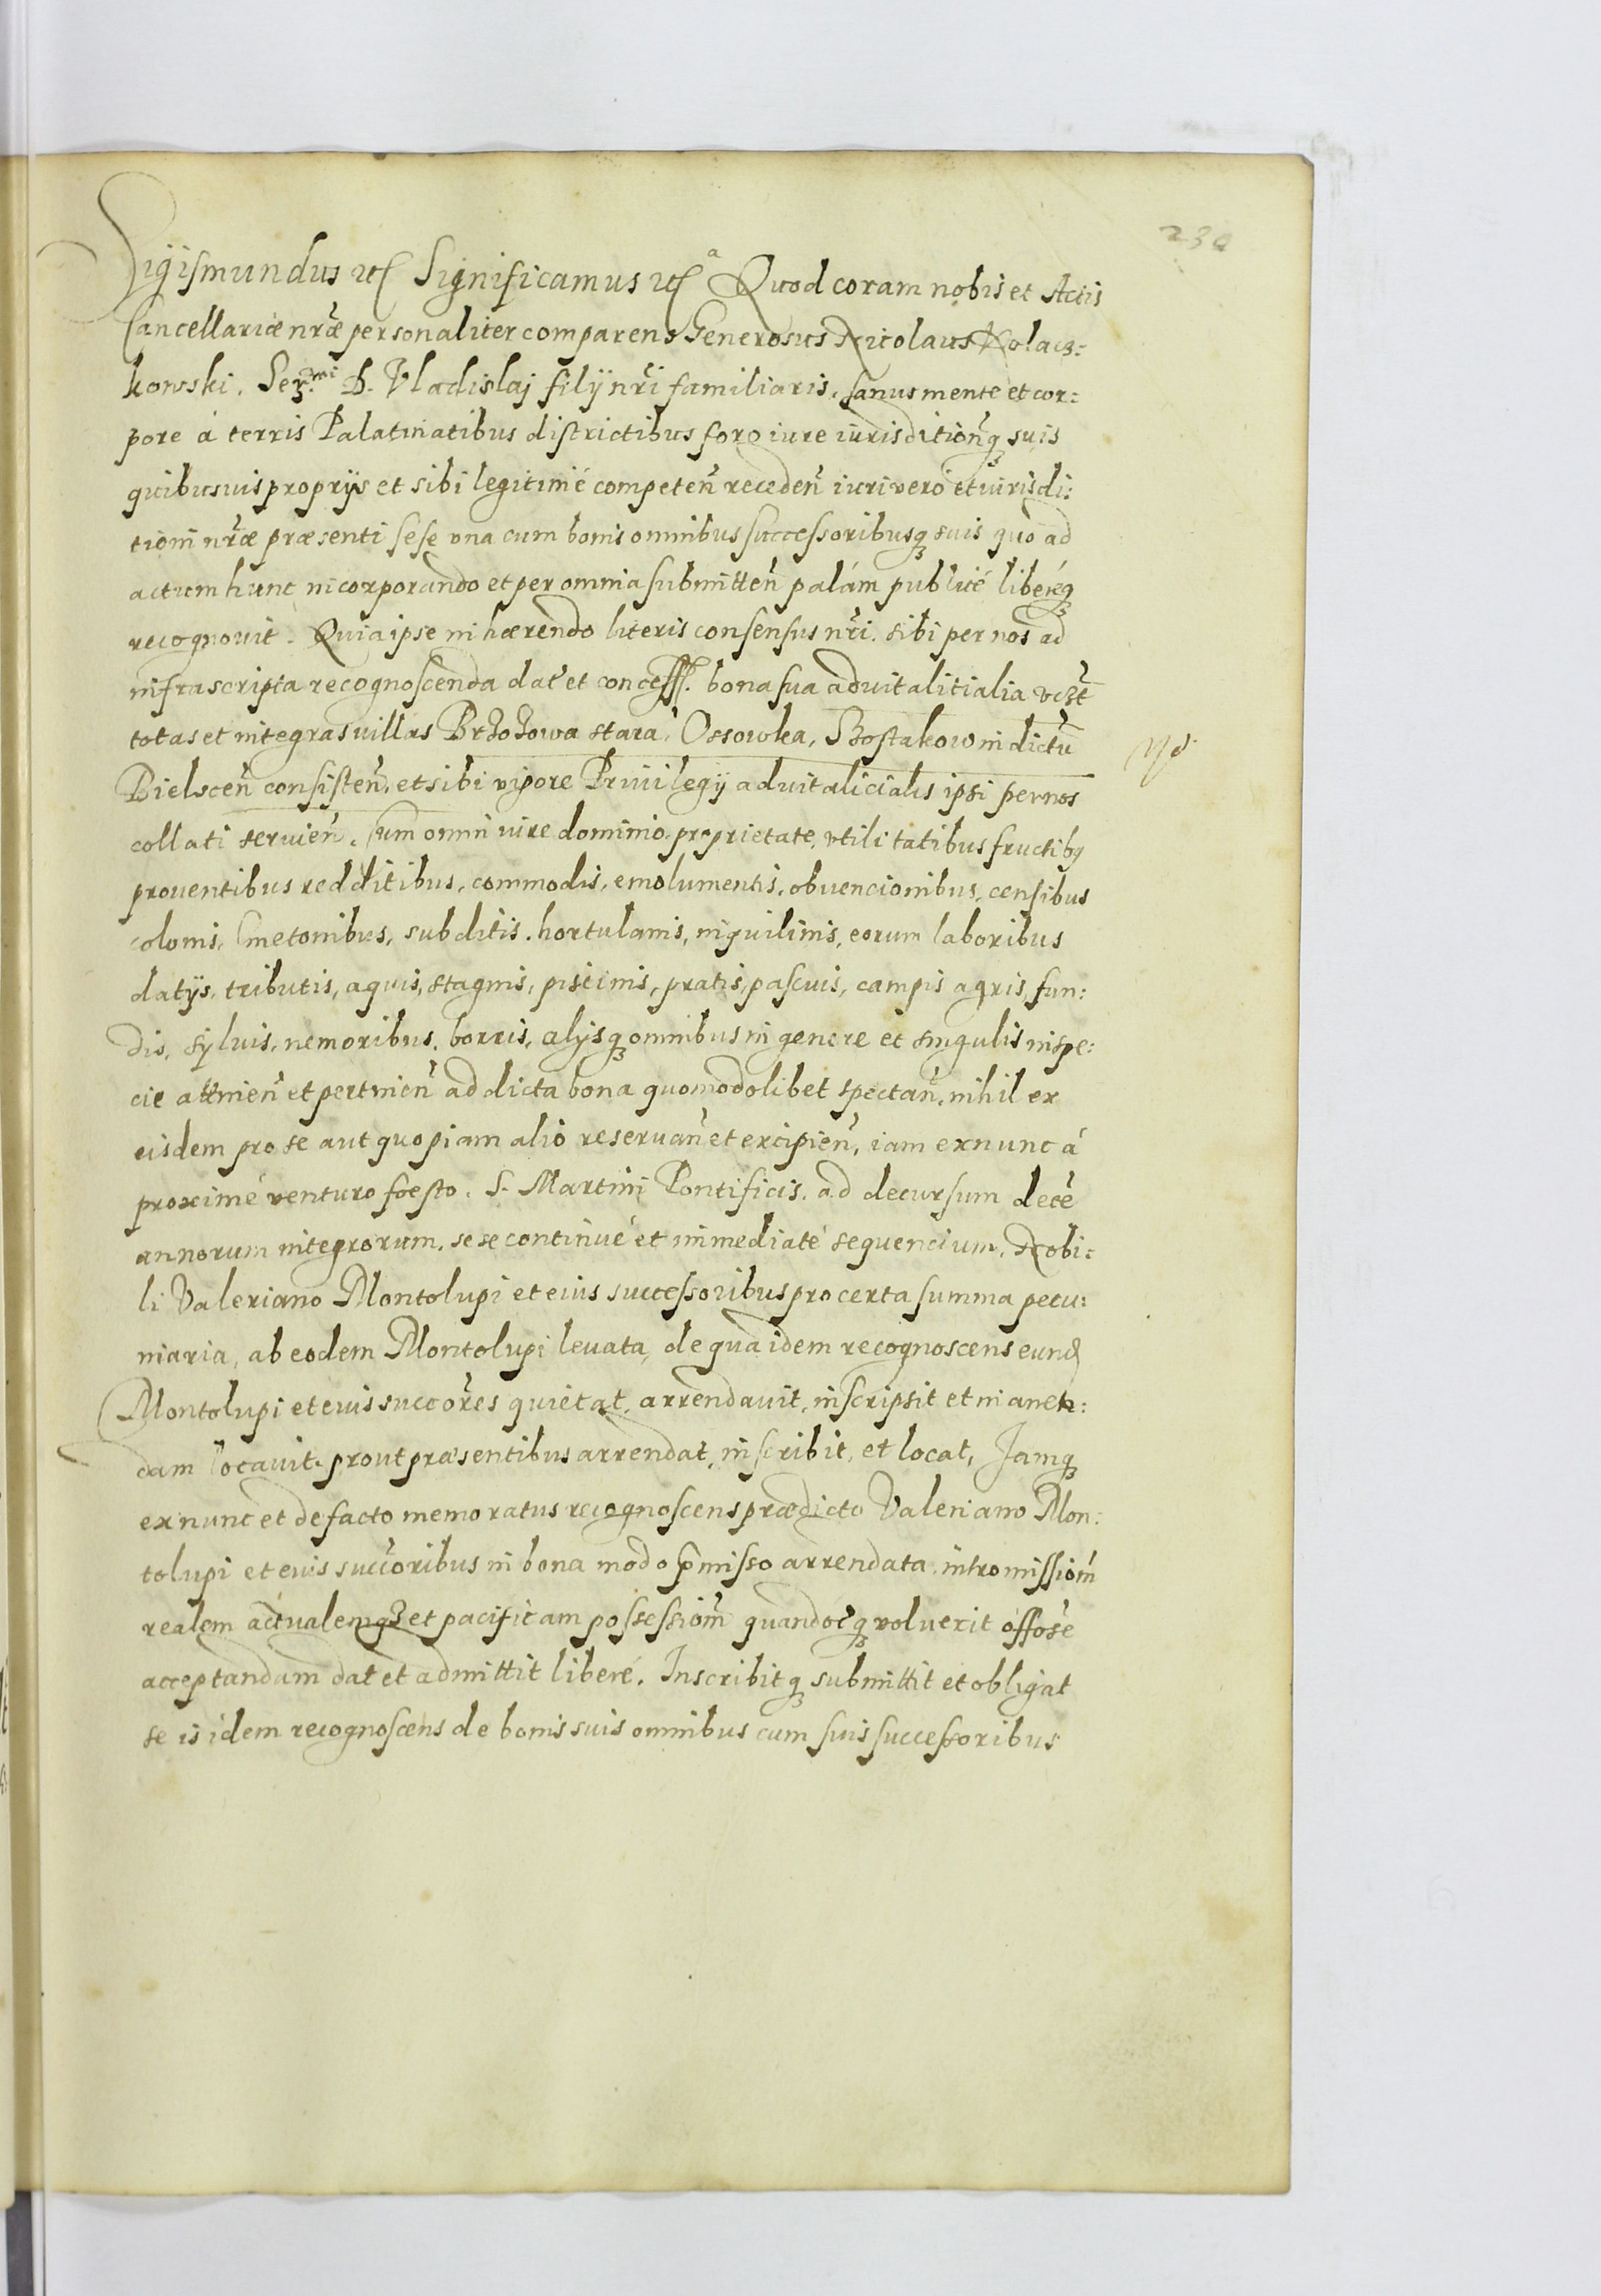 230
Sigismundus etc Significamus etc Quod coram nobis et Actis
Cancellariæ nr̃æ personaliter comparens Generosus Nicolaus Kolacz:
kowski. Ser.mi D. Vladislaj filij nr̃i familiaris, sanus mente et cor:
pore á terris Palatinatibus districtibus foro iure iurisditionq̃ suis
quibusuis proprijs et sibi legitimé competeñ recedeñ iuri vero et iurisdi:
tioni nr̃æ præsenti sese vna cum bonis omnibus successoribusq̃ suis quo ad
actum hunc incorporando et per omnia submitteñ palám publicé liberéq̃
recognouit. Quia ipse inhærendo literis consensus nr̃i sibi per nos ad
infrascripta recognoscenda dat̃ et concess̃. bona sua aduitalitialia vczt̃
totas et integras villas Brzozowa stara, Ossowka, Szostakow in dictũ
Bielsceñ consisteñ, et sibi vigore Priuilegij aduitalicialis ipsi per nos
collati seruieñ. Cum omni iure dominio proprietate, vtilitatibus fructibq
prouentibus redditibus, commodis, emolumentis, obuencionibus, censibus
colonis, Cmetonibus, subditis, hortulanis, inquilinis, eorum laboribus
datijs, tributis, aquis, stagnis, piscinis, pratis, pascuis, campis agris, fun:
dis, syluis, nemoribus, borris, alijsq̃ omnibus in genere et singulis in spe:
cie attineñ et pertineñ ad dicta bona quomodolibet spectañ, nihil ex
eisdem pro se aut quopiam alio reseruañ et excipieñ, iam exnunc á
proximé venturo foesto. S. Martini Pontificis. ad decursum decẽ
annorum integrorum, sese continué et immediaté sequencium, Nobi:
li Valeriano Montolupi et eius successoribus pro certa summa pecu:
niaria, ab eodem Montolupi leuata, de qua idem recognoscens eund
Montolupi et eius succor̃es quietat, arrendauit, inscripsit et in aren:
dam locauit, prout præsentibus arrendat, inscribit, et locat, Jamq̃
exnunc et de facto memoratus recognoscens prædicto Valeriano Mon:
tolupi et eius succor̃ibus in bona modo p̃misso arrendata intromissiom̃
realem actualemq̃ et pacificam possessiom̃ quandocq̃ voluerit
acceptandam dat et admittit liberé. Inscribitq̃ submittit et obligat
se is idem recognoscens de bonis suis omnibus cum suis successoribus